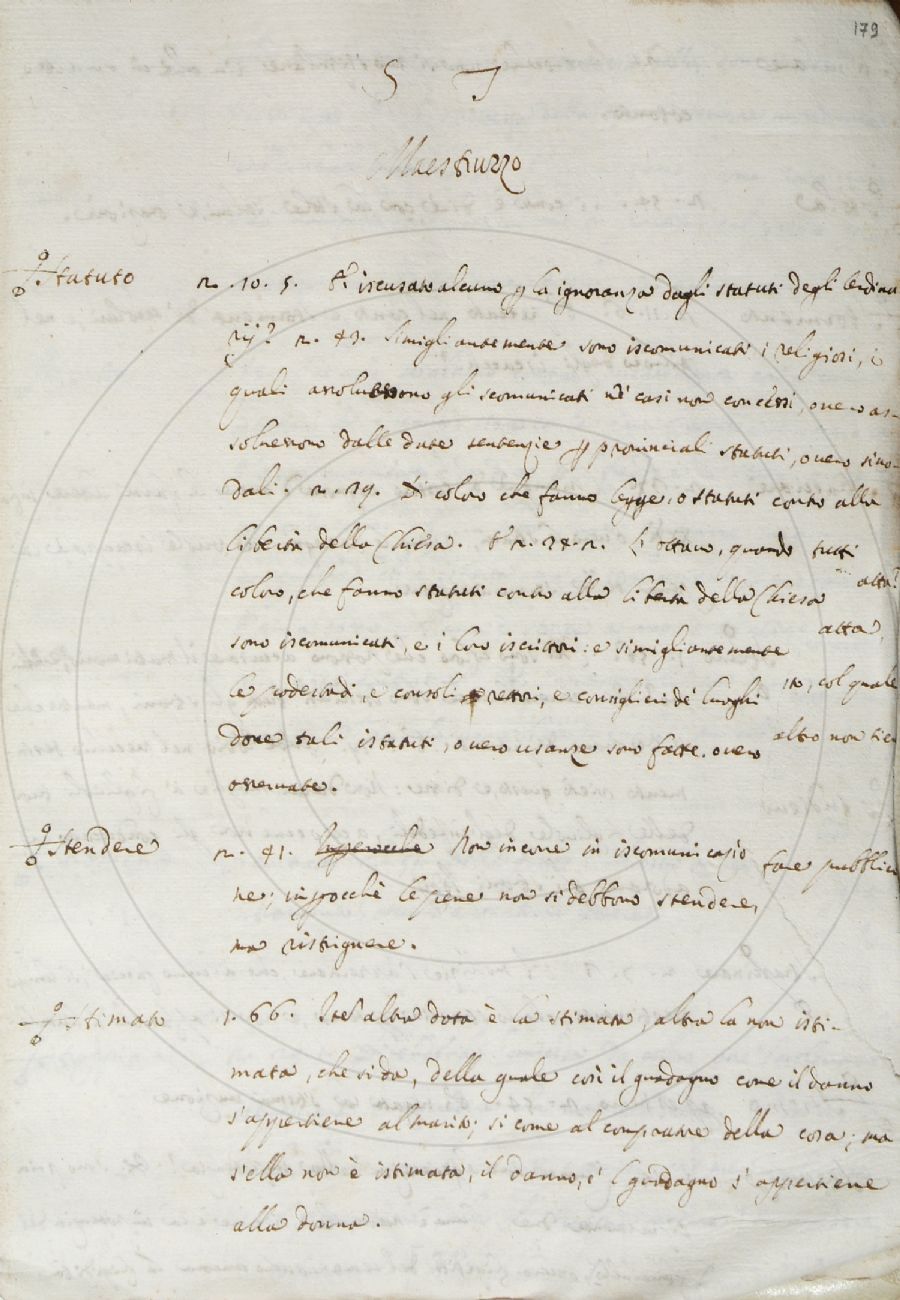 179
S T
Maestruzzo
Statuto 2. 10. 5. È iscusato alcuno p la ignoranza dagli statuti degli
rij? 2. 43. Simigliantemente sono iscomunicati i religiosi, i
quali assolvessono gli scomunicati ne' casi non concessi, overo as-
solvessono dalle date sentenzie p provinciali statuti, overo sino-
dali. 2. 29. Di coloro che fanno legge, o statuti contro alla
libertà della Chiesa. E 2. 2. L' ottavo, quando tutti
coloro, che fanno statuti contro alla libertà della Chiesa
sono iscomunicati, e i loro iscrittori: e simigliantemente
le podestadi, e consoli rettori, e consiglieri de' luoghi
dove tali istatuti, overo usanze sono fatte, overo
osservate.
atta?
atta,
to, col quale
altro non tie
fare pubblic
Stendere 2. 41. Imperocche Non incorre in iscomunicazio
ne; impocchè le pene non si debbono stendere,
ma ristrignere.
Stimato 1. 66. altra dota è la stimata, altra la non isti-
mata, che si dà, della quale così il guadagno come il danno
s'appertiene al marito; sì come al compratore della cosa; ma
s'ella non è istimata, il danno, e 'l guadagno s'appertiene
alla donna.